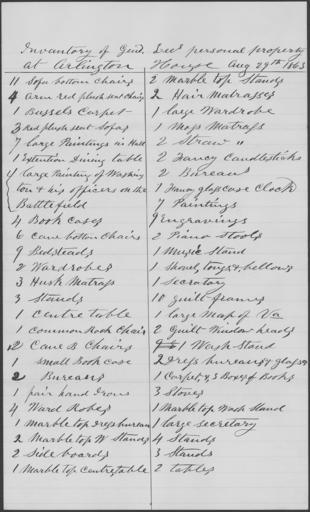 Inventory of Genl. Lees personal property
at Arlington House Aug 29th 1863
11 Sofa bottom Chairs
4 Arm red plush seat chairs
1 Bussels Carpet
3 red plush seat Sofas
7 large Paintings in Hall
1 Extention Dining table
1 large Painting of Washing
ton & his officers on the
Battlefield
4 Book cases
6 cane bottom Chairs
9 Bedsteads
2 Wardrobes
3 Husk Matrass
3 Stands
1 Centre table
1 common Rock Chair
2 Cane B Chairs
1 small Book case
2 Bureaus
1 pair hand Irons
4 Ward Robes
1 marble top Dress bureau
2 Marble top W Stands
2 Side boards
1 Marble top Centre table
2 Marble top Stands
2 Hair Matrasses
1 large Wardrobe
1 Moss Matrass
2 Straw "
2 Fancy Candlesticks
2 Bureaus
1 Fancy glass case Clock
7 Paintings
9 Engravings
2 Piano Stools
1 Music Stand
1 Shovel, tongs & bellows
1 Secretary
10 guilt frames
1 large Map of Va
2 Guilt Window heads
1 Wash Stand
2 Dress bureaus & glasses
1 Carpet, & 3 Boxes of Books
3 Stoves
1 Marble top Wash Stand
1 large secretary
4 Stands
3 Stands
2 tables